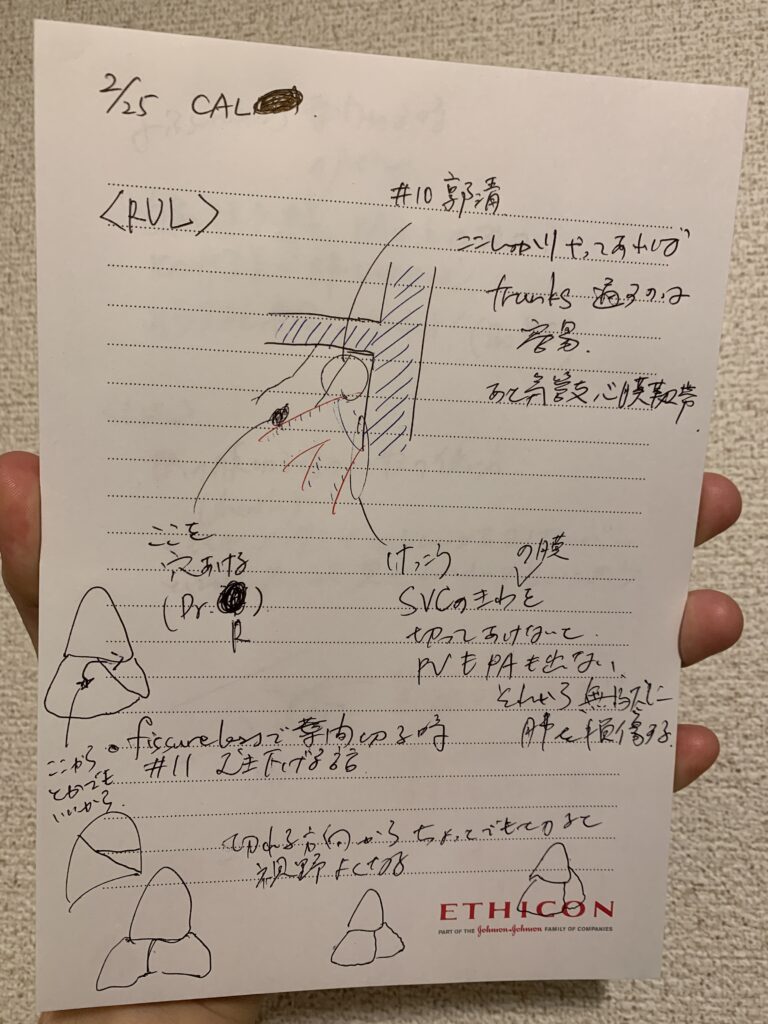 2/25 CAL
<RUL>
#10 郭清
ここしっかりやってあれば
trunks 通るのは
容易.
あと気管支心膜靭帯
ここを
穴あける
(Dr. )
R
けっこう
の膜
SVCのきわを
切ってあげないと
PVもPAも出ない.
それから無理に
肺を損傷する
・fissurelessで葉間切る時
#11 まで下げる
ここから
とかでも
いいから.
切れる方向からちょっとでも
視野よくなる
ETHICON
PART OF THE Johnson & Johnson FAMILY OF COMPANIES